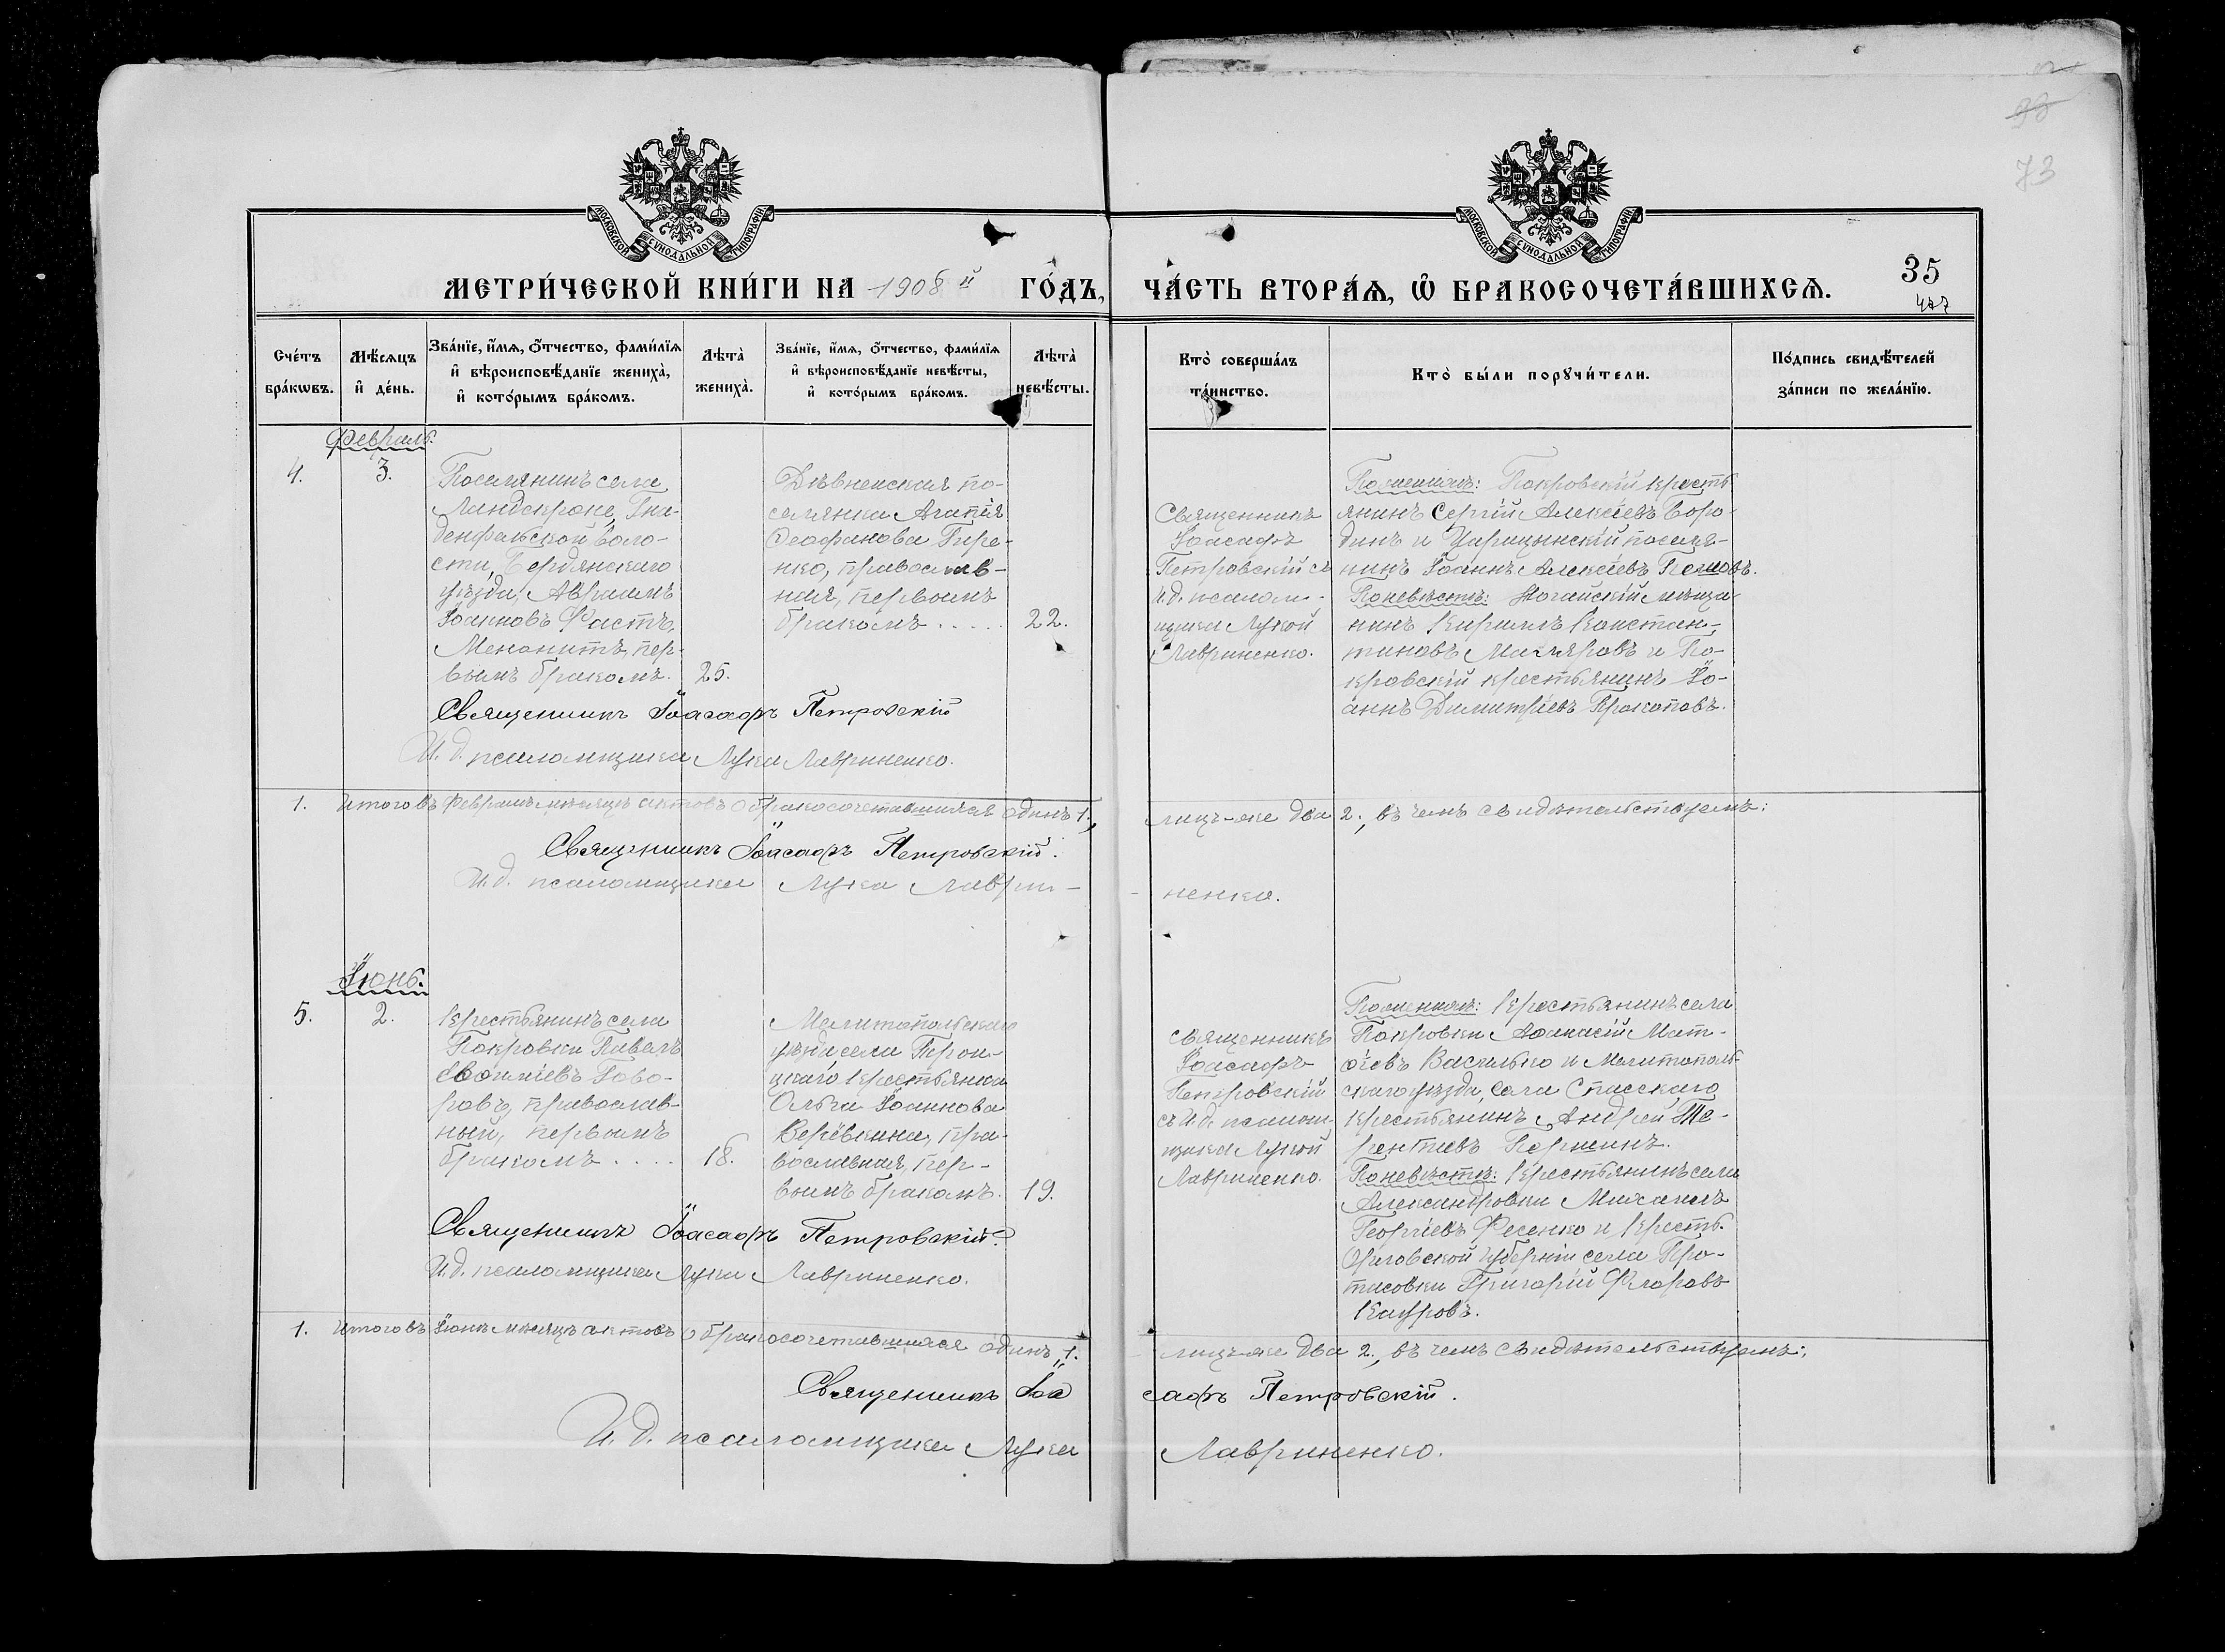 93
73
МОСКОВСКОЙ СѴНОДАЛЬНОЙ ТИПОГРАФІИ
МОСКОВСКОЙ СѴНОДАЛЬНОЙ ТИПОГРАФІИ
МЕТРИ́ЧЕСКОЙ КНИ́ГИ НА 1908 й ГО́ДЪ,
ЧА́СТЬ ВТОРА́Ѧ, Ѡ҆ БРАКОСОЧЕТА́ВШИХСѦ.
35
Сче́тъ
бра́кѡвъ.
Мѣ́сяцъ
и҆ де́нь.
Зва́нїе, и҆́мѧ, ѻ҆́тчество, фами́лїѧ
и҆ вѣроисповѣ́данїе жениха̀,
и҆ кото́рымъ бра́комъ.
Лѣ̀та̀
жениха̀.
Зва́нїе, и҆́мѧ, ѻ҆́тчество, фами́лїѧ
и҆ вѣроисповѣ́данїе невѣ́сты,
и҆ кото́рымъ бра́комъ.
Лѣ̀та̀
невѣ́сты.
Кто̀ соверша́лъ
та́инство.
Кто̀ бы́ли порꙋчи́тели.
По́дпись свидѣ́телей
за́писи по жела́нїю.
Февраль.
4.
3.
Поселянинъ села
Ландскроне, Гна-
денфельской воло-
сти, Бердянскаго
уѣзда, Авраамъ
Іоанновъ Фастъ,
Менонитъ, пер-
вымъ бракомъ.
25.
по-
селянка Агапія
Ѳеофанова Гире-
нко, православ-
ная, первымъ
бракомъ.....
22.
Священникъ
Іоасафъ
Петровскій съ
И. д. псалом-
щика Лукой
Лавриненко.
По женихѣ: Покровскій кресть-
янинъ Сергій Алексіевъ Боро-
динъ и Царицынскій поселя-
нинъ Іоаннъ Алексіевъ
По невѣстѣ: Ногайскій мѣща-
нинъ Кириллъ Констан-
тиновъ и По-
кровскій крестьянинъ Іо-
аннъ Димитріевъ Прокоповъ.
Священникъ Іоасафъ Петровскій
И. д. псаломщика Лука Лавриненко.
1. Итого въ Февралѣ мѣсяцѣ актовъ о бракосочетавшихся одинъ 1.,
лицъ-же два 2., въ чемъ свидѣтельствуемъ:
Священникъ Іоасафъ Петровскій.
И. д. псаломщика Лука Лаври-
ненко.
Іюнь.
5.
2.
Крестьянинъ села
Покровки Павелъ
Гово-
ровъ, православ-
ный, первымъ
бракомъ....
18.
Мелитопольскаго
уѣзда села Трои-
цкаго крестьянка
Ольга Іоаннова
Верёвкина, пра-
вославная, пер-
вымъ бракомъ.
19.
Священникъ
Іоасафъ
Петровскій
съ И. д. псалом-
щика Лукой
Лавриненко.
По женихѣ: Крестьянинъ села
Покровки Аѳанасій Мат-
ѳіевъ Василько и Мелитополь-
скаго уѣзда, села Спасскаго
крестьянинъ Андрей Те-
рентіевъ Першинъ.
По невѣстѣ: Крестьянинъ села
Александровки Михаилъ
Георгіевъ Фесенко и кресть.
Орловской губерніи села Про-
тасовки Григорій Флоровъ
Кауровъ.
Священникъ Іоасафъ Петровскій.
И. д. псаломщика Лука Лавриненко.
1. Итого въ Іюнѣ мѣсяцѣ актовъ о бракосочетавшихся одинъ „1.
лицъ-же два 2., въ чемъ свидѣтельствуемъ:
Священникъ Іоа
сафъ Петровскій.
И. д. псаломщика Лука
Лавриненко.